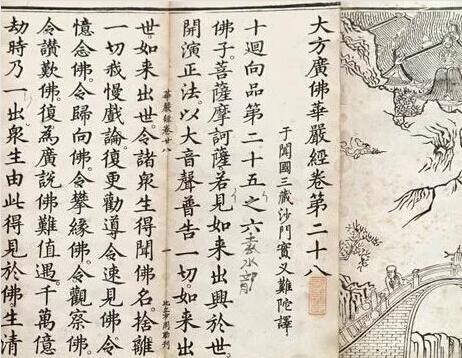 大方廣佛華嚴經卷第二十八
于闐國三藏沙門實叉難陀譯
十迴向品第二十五之六
佛子。菩薩摩訶薩若見如来出興於世。
開演正法。以大音聲普告一切。如来出
華嚴經卷廿八
世。如来出世。令諸衆生得聞佛名。捨離
一切我慢戲論。復更勸導。令速見佛。令
憶念佛。令歸向佛。令攀緣佛。令觀察佛。
令讚歎佛。復爲廣說佛難值遇。千萬億
劫時乃一出。衆生由此得見於佛。生清